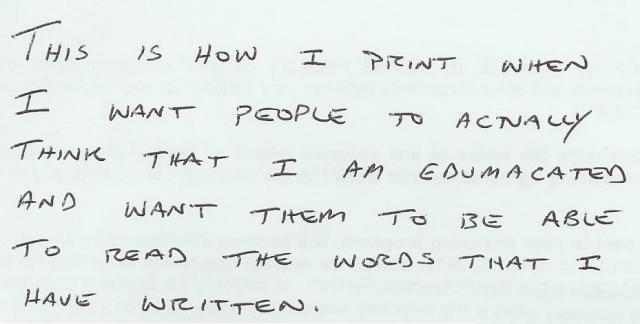 THIS IS HOW I PRINT WHEN
I WANT PEOPLE TO ACTUALLY
THINK THAT I AM EDUMACATED
AND WANT THEM TO BE ABLE
TO READ THE WORDS THAT I
HAVE WRITTEN.